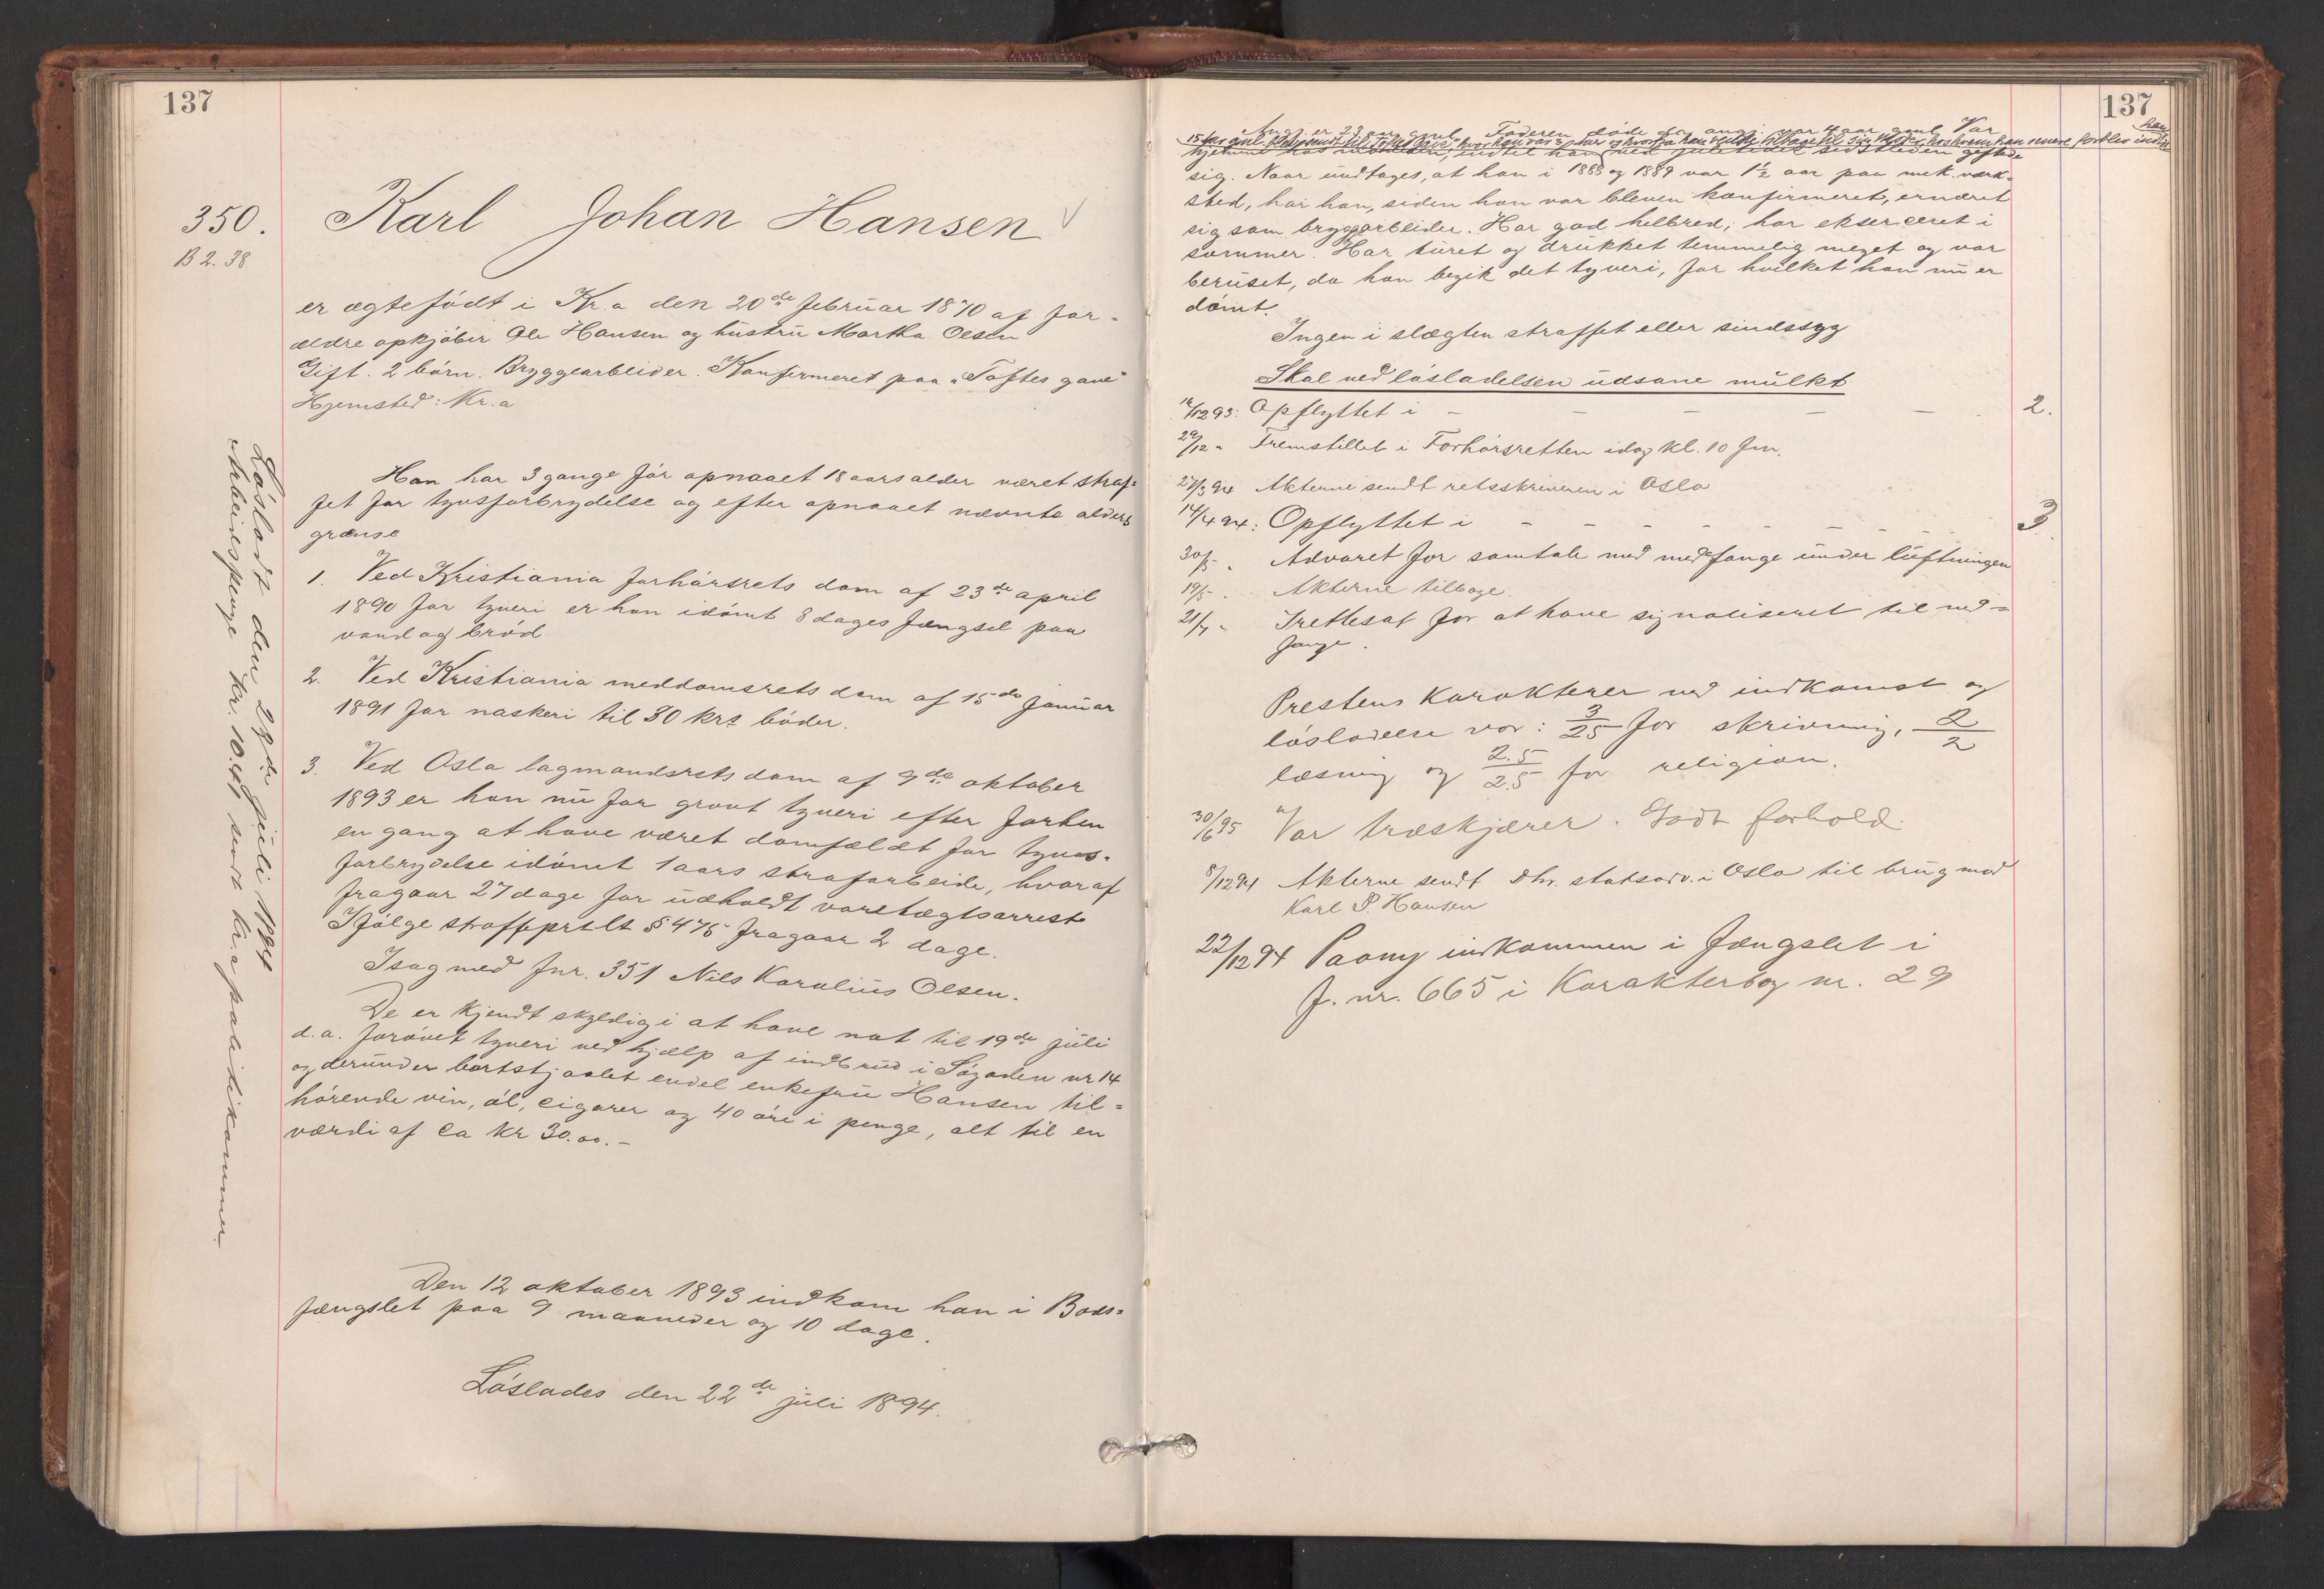 137
350.
B 2. 38
Karl Johan Hansen
er ægtefödt i Kr.a den 20de februar 1870 af for-
ældre opkjöber Ole Hansen og hustru Martha Olsen
Gift. 2 börn. Bryggearbeider. Konfirmeret paa "Toftes gave"
Hjemsted: Kr.a
Han har 3 gange för opnaaet 18 aars alder været straf-
fet for tyvsforbrydelse og efter opnaaet nævnte alders
grænse
1. Ved Kristiania forhörsrets dom af 23de april
1890 for tyveri er han idömt 8 dages fængsel paa
vand og bröd
2. Ved Kristiania meddomsrets dom af 15de januar
1891 for naskeri til 30 krs böder.
3. Ved Oslo lagmandsrets dom af 9de oktober
1893 er han nu for grovt tyveri efter forhen
en gang at have været domfældt for tyvs-
forbrydelse idömt 1 aars strafarbeide, hvoraf
fragaar 27 dage for udholdt varetægtsarrest
Ifölge straffeprslt § 475 fragaar 2 dage.
I sag med fnr. 351 Nils Karolius Olsen.
De er kjendt skyldig i at have nat til 19de juli
d.a. forövet tyveri ved hjælp af indbrud i Sögaden nr 14
og derunder bortstjaalet endel enkefru Hansen til-
hörende vin, öl, cigarer og 40 öre i penge, alt til en
værdi af ca kr 30.00.-
Den 12 oktober 1893 indkom han i Bods-
fængslet paa 9 maaneder og 10 dage.
Löslades den 22de juli 1894.
Lösladt den 22de juli 1894
Arbeidspenge kr. 10.41 sendt kr.a politikammer.
137
Ang. er 23 aar gml. Faderen döde da ang. var 4 aar gml. Var han
15 aar gml. blev sendt til Toftes Gave, hvor han var 2 aar og hvorfra han vendte tilbage til sin Moder, hos hvem han senere forblev indtil
hjemme hos moderen, indtil han ved juletider sidstleden giftede
sig. Naar undtages, at han i 1888 og 1889 var 1½ aar paa mek. værk-
sted, har han, siden han var bleven konfirmeret, ernæret
sig som bryggarbeider. Har god helbred; har ekserceret i
sommer. Har turet og drukket temmelig meget og var
beruset, da han begik det tyveri, for hvilket han nu er
dömt.
Ingen i slægten straffet eller sindssyg
Skal ved lösladelsen udsone mulkt
14/12 93: Opflyttet i - - - - - 2.
29/12 " Fremstillet i Forhörsretten idag kl. 10 fm.
27/3 94 Akterne sendt retsskriveren i Oslo
14/4 94: Opflyttet i - - - - - - - 3
30/5 " Advaret for samtale med medfange under luftningen
19/5 " Akterne tilbage.
21/7 " Irettesat for at have signaliseret til med-
fange.
Prestens Karakterer ved indkomst og
lösladelse var: 3/25 for skrivning, 2/2
læsning og 2.5/2.5 for religion.
30/6 95 Var træskjærer. Godt forhold.
8/12 94 Akterne sendt Hr. statsadv. i Oslo til brug mod
Karl P. Hansen
22/12 94 Paany indkommen i fængslet i
f. nr. 665 i Karakterbog nr. 29